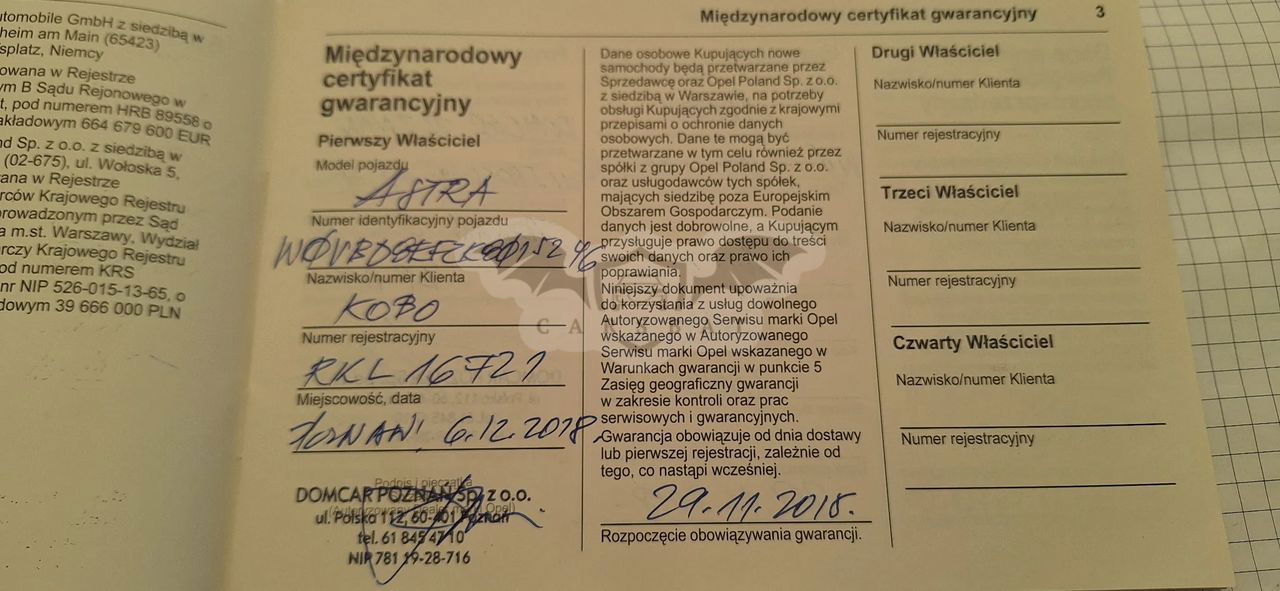 utomobile GmbH z siedzibą w
heim am Main (65423)
splatz, Niemcy
owana w Rejestrze
ym B Sądu Rejonowego w
t, pod numerem HRB 89558 o
akładowym 664 679 600 EUR
nd Sp. z o.o. z siedzibą w
(02-675), ul. Wołoska 5,
rana w Rejestrze
rców Krajowego Rejestru
prowadzonym przez Sąd
a m.st. Warszawy, Wydział
arczy Krajowego Rejestru
od numerem KRS
nr NIP 526-015-13-65, o
dowym 39 666 000 PLN
Międzynarodowy certyfikat gwarancyjny 3
Międzynarodowy
certyfikat
gwarancyjny
Pierwszy Właściciel
Model pojazdu
ASTRA
Numer identyfikacyjny pojazdu
Nazwisko/numer Klienta
KOBO
Numer rejestracyjny
RKL 16721
Miejscowość, data
POZNAŃ, 6.12.2018.
Podpis i pieczątka
DOMCAR POZNAŃ Sp. z o.o.
(Autoryzowany Dealer marki Opel)
ul. Polska 112, 60-401 Poznań
tel. 61 845 47 10
NIP 781 19-28-716
Dane osobowe Kupujących nowe
samochody będą przetwarzane przez
Sprzedawcę oraz Opel Poland Sp. z o.o.
z siedzibą w Warszawie, na potrzeby
obsługi Kupujących zgodnie z krajowymi
przepisami o ochronie danych
osobowych. Dane te mogą być
przetwarzane w tym celu również przez
spółki z grupy Opel Poland Sp. z o.o.
oraz usługodawców tych spółek,
mających siedzibę poza Europejskim
Obszarem Gospodarczym. Podanie
danych jest dobrowolne, a Kupującym
przysługuje prawo dostępu do treści
swoich danych oraz prawo ich
poprawiania.
Niniejszy dokument upoważnia
do korzystania z usług dowolnego
Autoryzowanego Serwisu marki Opel
wskazanego w Autoryzowanego
Serwisu marki Opel wskazanego w
Warunkach gwarancji w punkcie 5
Zasięg geograficzny gwarancji
w zakresie kontroli oraz prac
serwisowych i gwarancyjnych.
Gwarancja obowiązuje od dnia dostawy
lub pierwszej rejestracji, zależnie od
tego, co nastąpi wcześniej.
29.11.2018.
Rozpoczęcie obowiązywania gwarancji.
Drugi Właściciel
Nazwisko/numer Klienta
Numer rejestracyjny
Trzeci Właściciel
Nazwisko/numer Klienta
Numer rejestracyjny
Czwarty Właściciel
Nazwisko/numer Klienta
Numer rejestracyjny